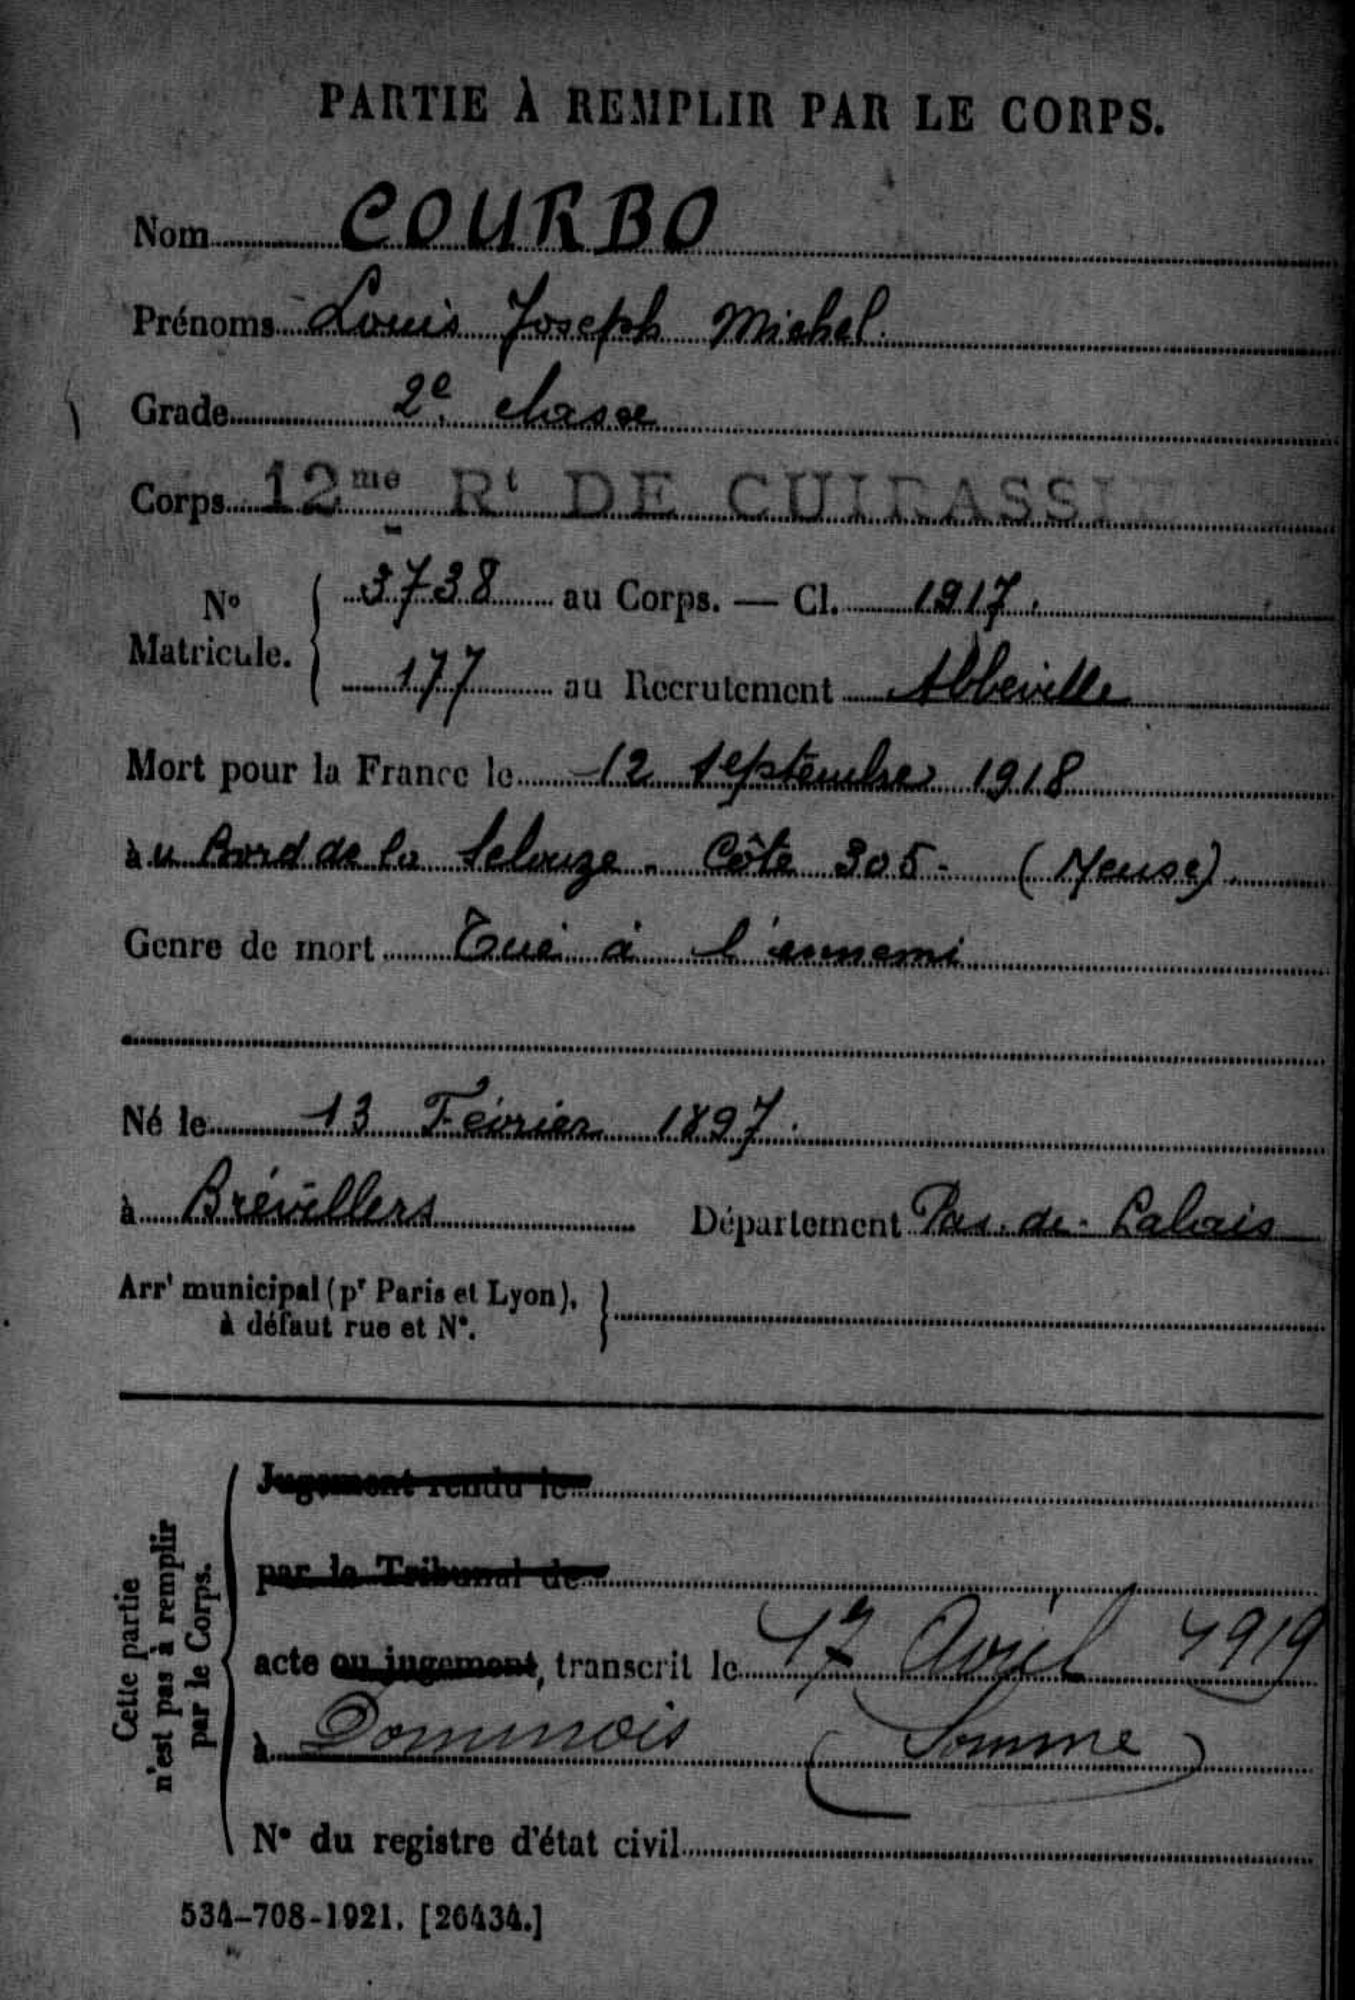 PARTIE À REMPLIR PAR LE CORPS.
Nom COURBO
Prénoms Louis Joseph Michel
Grade 2e classe
Corps 12me Rt DE CUIRASSI
No Matricule. 3738 au Corps. — Cl. 1917.
177 au Recrutement Abbeville
Mort pour la France le 12 septembre 1918
àu Bord de la - Côte 305 - (Meuse)
Genre de mort Tué à l'ennemi
Né le 13 Février 1897.
à Brévillers Département Pas-de-Calais
Arrt municipal (pr Paris et Lyon),
à défaut rue et No.
Cette partie
n'est pas à remplir
par le Corps.
Jugement rendu le
par le Tribunal de
acte ou jugement, transcrit le 17 Avril 1919
à Dominois (Somme)
No du registre d'état civil
534-708-1921. [26434.]